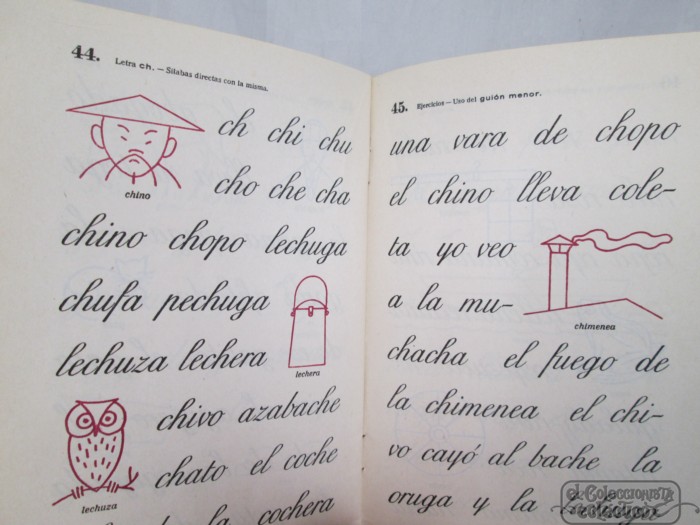 44. Letra ch. — Sílabas directas con la misma.
ch chi chu
cho che cha
chino
chino chopo lechuga
chufa pechuga
lechera
lechuza lechera
chivo azabache
chato el coche
lechuza
la cochera
45. Ejercicios — Uso del guión menor.
una vara de chopo
el chino lleva cole-
ta yo veo
a la mu-
chimenea
chacha el fuego de
la chimenea el chi-
vo cayó al bache la
oruga y la
el Coleccionista
eclectico